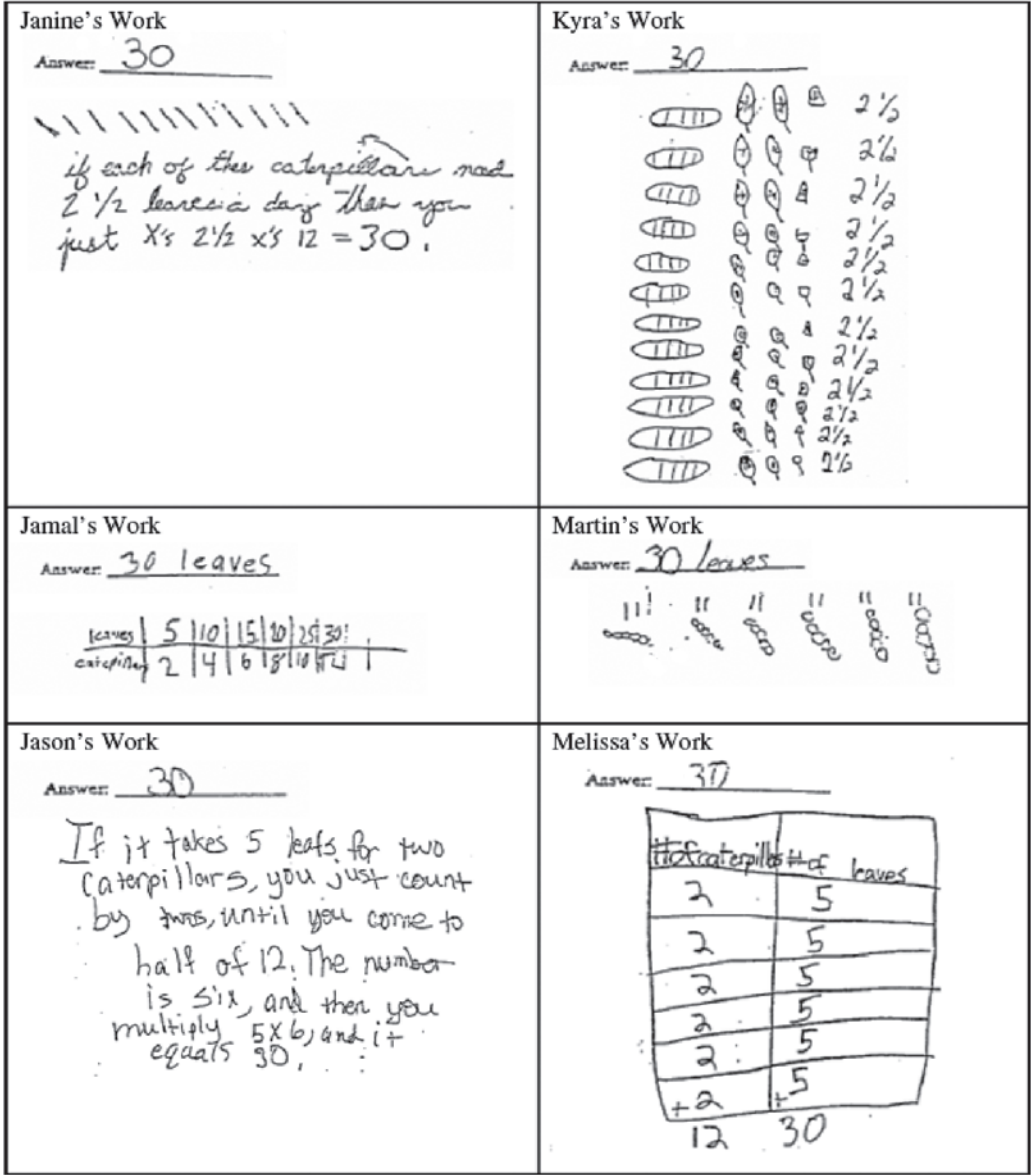 Janine's Work
Answer: 30
if each of thes caterpillars need
2 1/2 leaves a day then you
just X's 2 1/2 x's 12 = 30.
Kyra's Work
Answer: 30
2 1/2
2 1/2
2 1/2
2 1/2
2 1/2
2 1/2
2 1/2
2 1/2
2 1/2
2 1/2
2 1/2
2 1/2
Jamal's Work
Answer: 30 leaves
leaves 5 10 15 20 25 30
2 4 6 8 10
Martin's Work
Answer: 30 leaves
Jason's Work
Answer: 30
If it takes 5 leafs for two
caterpillars, you just count
by twos, until you come to
half of 12. The number
is six, and then you
multiply 5x6, and it
equals 30.
Melissa's Work
Answer: 30
# of caterpillas # of leaves
2 5
2 5
2 5
2 5
2 5
+2 +5
12 30